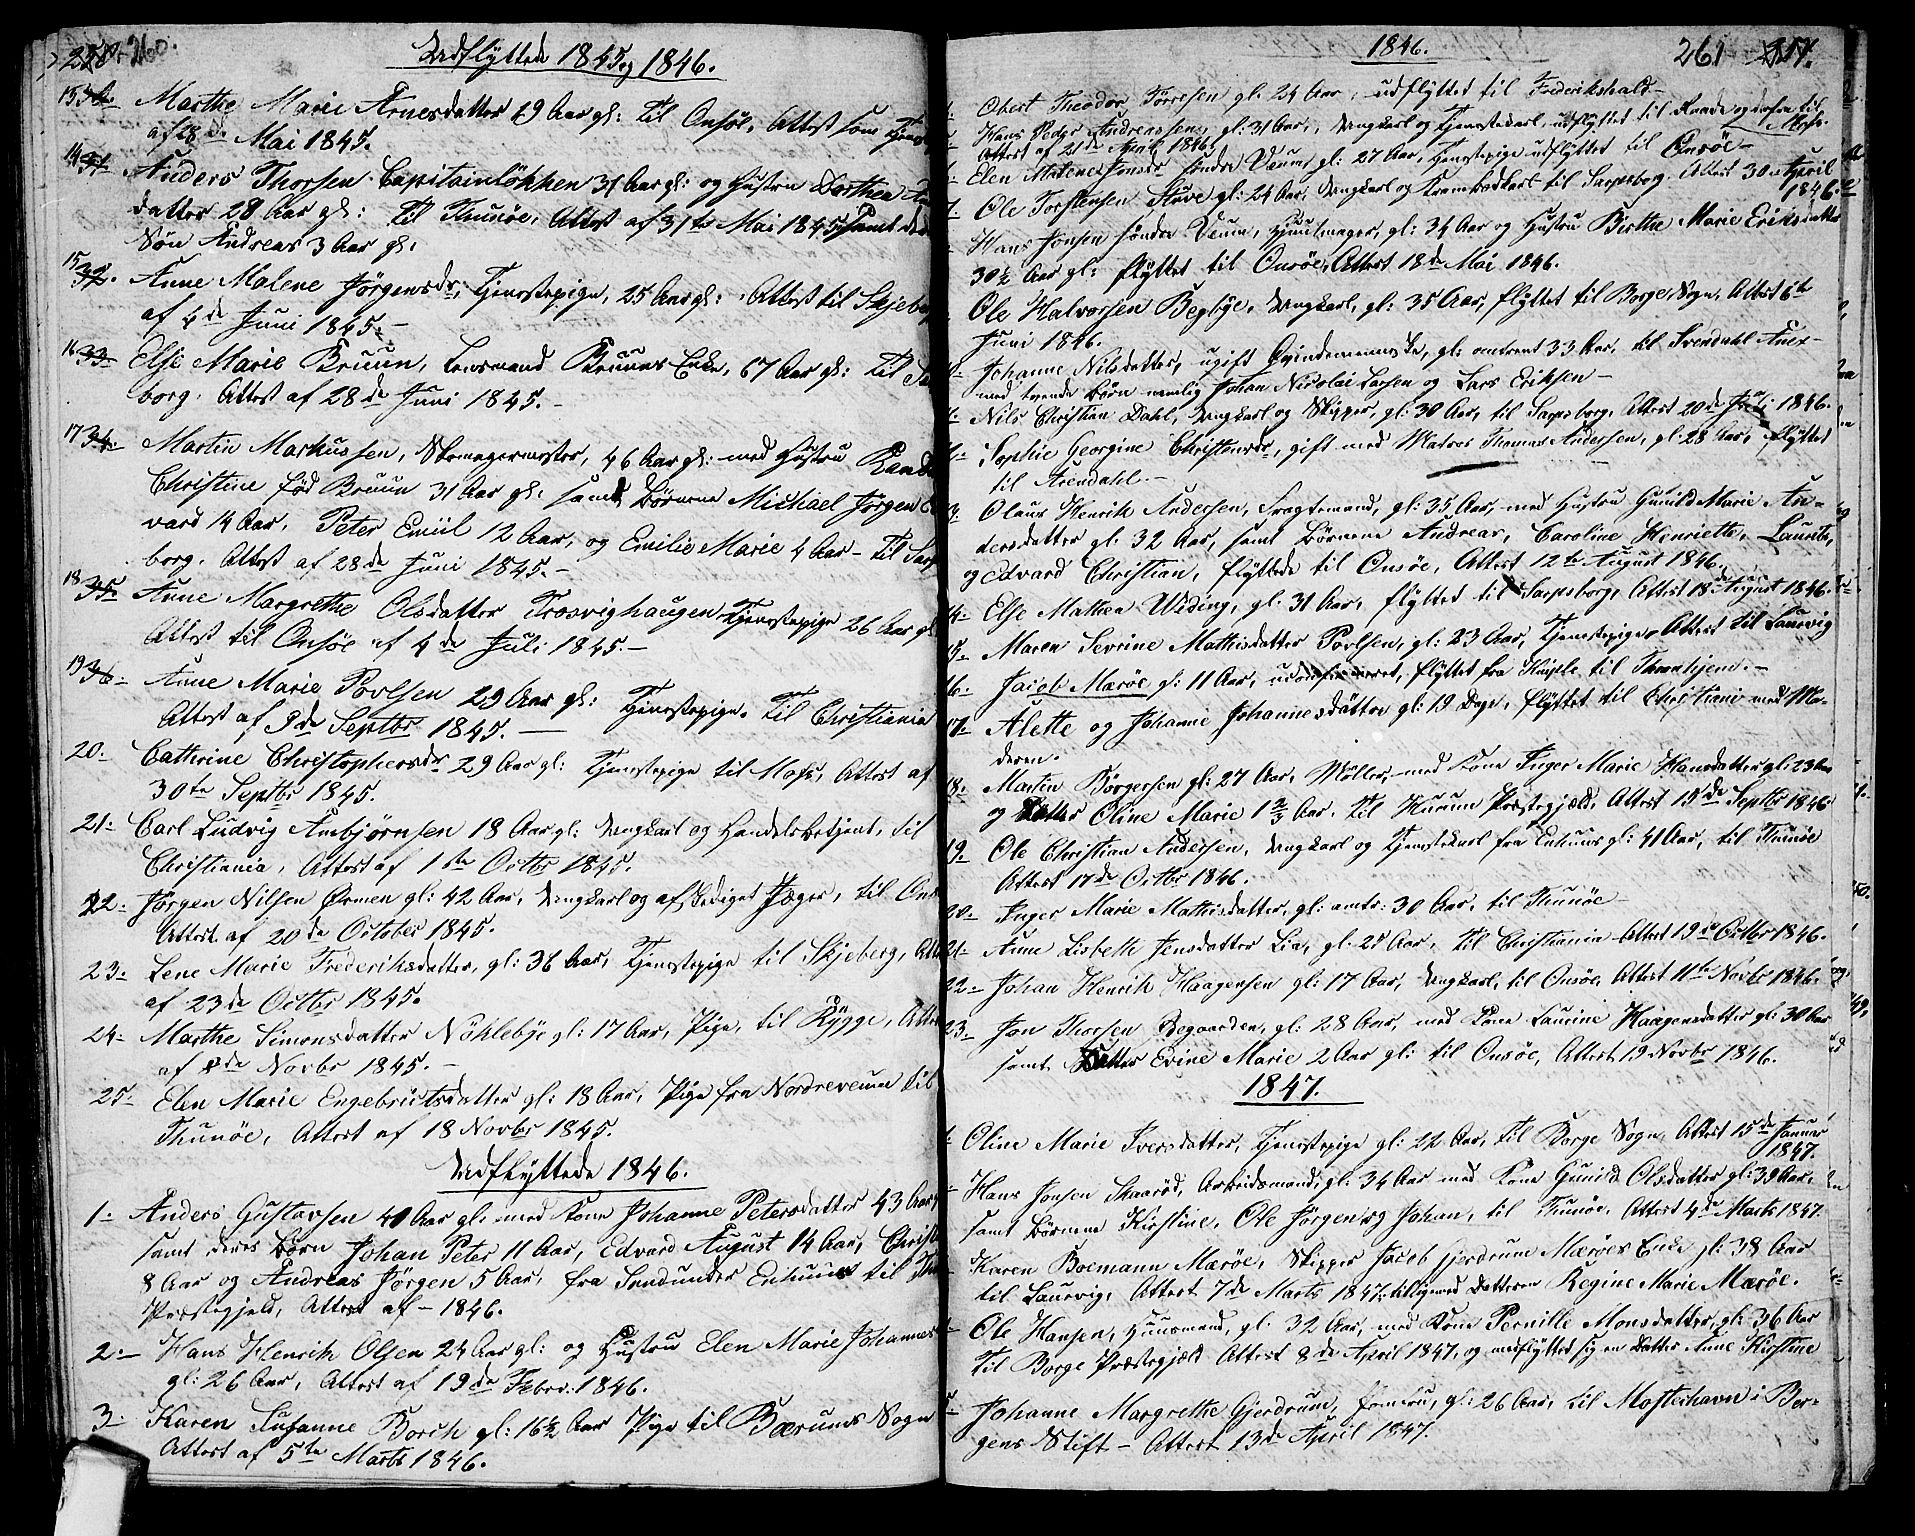 260.
Udflyttede 1845 og 1846.
13 Marthe Marie Arnesdatter 19 Aar gl: til Onsöe, Attest som Tjene
af 28de Mai 1845.
14 Anders Thorsen Capitainlökken 31 Aar gl: og Hustru Dorthea An
datter 28 Aar gl: til Thunöe, Attest af 31te Mai 1845, samt deres
Sön Andreas 3 Aar gl.
15 32. Anne Malene Jörgensdr, Tjenestepige, 25 Aar gl: Attest til Skjeber
af 4de Juni 1845.
16 33 Else Marie Bruun, Lensmand Bruuns Enke, 67 Aar gl: til Sar
borg. Attest af 28de Juni 1845.
17 34. Martin Markussen, Skomagermester, 46 Aar gl: med Hustru Rand
Christine föd Bruun 31 Aar gl. samt Börnene Michael Jörgen E
vard 14 Aar, Peter Emiil 12 Aar, og Emilie Marie 4 Aar til Sarps
borg. Attest af 28de Juni 1845.
18 35 Anne Margrethe Olsdatter Trosvighaugen Tjenestepige 26 Aar gl
Attest til Onsöe af 4de Juli 1845.
19 36 Anne Marie Povlsen 29 Aar gl: Tjenestepige. til Christiania
Attest af 9de Septbr 1845.
20. Cathrine Christophersdr 29 Aar gl: Tjenestepige til Moss, Attest af
30te Septbr 1845.
21. Carl Ludvig Ambjørnsen 18 Aar gl: Ungkarl og Handelsbetjent, til
Christiania, Attest af 1ste Octbr 1845.
22. Jörgen Nilsen Ørmen gl: 42 Aar, Ungkarl og afskediget Jæger, til Ons
Attest af 20de October 1845.
23. Lene Marie Frederiksdatter, gl: 36 Aar, Tjenestepige til Skjeberg, Att
af 23de Octbr 1845.
24. Marthe Simonsdatter Nöklebye gl: 17 Aar, Pige, til Rygge, Atte
af 8de Novbr 1845.
25. Elen Marie Engebrietsdatter gl: 18 Aar, Pige fra Nordreveum til
Thunöe, Attest af 18 Novbr 1845.
Udflyttede 1846.
1. Anders Gustavsen 40 Aar gl. med Kone Johanne Petersdatter 43 Aar
samt deres Börn Johan Peter 11 Aar, Edvard August 14 Aar, Christ
8 Aar og Andreas Jörgen 5 Aar, fra til Thu
Præstegjeld, Attest af 1846.
2. Hans Henrik Olsen 24 Aar gl: og Hustru Elen Marie Johannes
gl: 26 Aar, Attest af 19de Febr: 1846.
3. Karen Susanne Borch gl: 16½ Aar Pige til Bærums Sogn
Attest af 5te Marts 1846.
1846.
261
Obert Theodor Törresen gl. 24 Aar, udflyttet til Frederikshald
Hans Peder Andreassen, gl: 31 Aar, Ungkarl og Tjenestekarl, udflyttet til Raade og derfra til Moss.
Attest af 21de April 1846.
Elen Malene Jonsdr söndre Veum gl: 27 Aar, Tjenestepige udflyttet til Onsöe
7. Ole Torstensen Stuve gl: 24 Aar, Ungkarl og Krambodkarl til Sarpsborg. Attest 30 April
1846.
Hans Jonsen söndre Veum, Hjuulmager, gl: 34 Aar og Hustru Birthe Marie Eriksdatter
30½ Aar gl: flyttet til Onsöe, Attest 18de Mai 1846.
Ole Halvorsen Begbye, Ungkarl, gl: 35 Aar, flyttet til Borge Sogn, Attest 6te
Juni 1846.
Johanne Nilsdatter, ugift Qvindemenneske, gl: omtrent 33 Aar, til Svendahl Anex
med tvende Börn nemlig Johan Nicolai Larsen og Lars Eriksen
Nils Christian Dahl, Ungkarl og Skipper, gl: 30 Aar, til Sarpsborg, Attest 20de Juli 1846.
Sophie Georgine Christensdr, gift med Matros Thomas Andersen, gl: 28 Aar, flyttet
til Arendahl.
13. Olaus Henrik Andersen, Fragtemand, gl: 35 Aar, med Hustru Gunild Marie An-
dersdatter gl. 32 Aar, samt Börnene Andreas, Caroline Henriette, Laurits,
og Edvard Christian, flyttede til Onsöe, Attest 12te August 1846.
14. Else Mathea Widing, gl. 31 Aar, flyttet til Sarpsborg, Attest 18de August 1846.
15. Maren Sevrine Mathisdatter Povlsen, gl: 23 Aar, Tjenestepige, Attest til Laurvig
16. Jacob Mæröe gl: 11 Aar, uconfirmeret, flyttet fra til Thronhjem.
17. Alette og Johanne Johannesdöttre gl: 19 Dage, flyttet til Christiania med Mo-
deren.
18. Martin Börgersen gl: 27 Aar, Møller, med Kone Inger Marie Hansdatter gl: 23 Aar
og Datter Oline Marie 1⅔ Aar, til Hurum Præstegjeld, Attest 19de Septbr 1846.
19. Ole Christian Andersen, Ungkarl og Tjenestekarl fra Enhuus gl: 41 Aar, til Thunöe
Attest 17de Octbr 1846.
20. Inger Marie Mathisdatter, gl: omtr: 30 Aar, til Thunöe
21. Anne Lisbeth Jensdatter Lie, gl: 25 Aar, til Christiania Attest 19de Octbr 1846.
22. Johan Henrik Haagensen gl: 17 Aar, Ungkarl, til Onsöe, Attest 11te Novbr 1846.
23. Jon Thorsen Begaarden, gl: 28 Aar, med Kone Laurine Haagensdatter gl: 30 Aar
samt Datter Evine Marie 2 Aar gl: til Onsöe, Attest 19 Novbr 1846.
1847.
1. Oline Marie Iversdatter, Tjenestepige gl: 22 Aar, til Borge Sogn, Attest 15de Januar
1847.
Hans Jonsen Skaaröd, Arbeidsmand, gl: 34 Aar med Kone Gunild Olsdatter gl: 39 Aar,
samt Börnene Kirstine, Ole Jörgen og Johan, til Thunöe, Attest 4de Marts 1847.
Karen Boemann Mæröe, Skipper Jacob Gjerdrum Mæröes Enke gl: 38 Aar
til Laurvig, Attest 7de Marts 1847 tilligemed Datteren Regine Marie Mæröe.
Ole Hansen, Huusmand, gl: 32 Aar, med Kone Pernille Monsdatter, gl: 36 Aar
til Borge Præstegjeld Attest 8de April 1847, og medflyttet sig en Datter Anne Kirstine
5. Johanne Margrethe Gjerdrum, Jomfru, gl: 26 Aar, til Mosterhavn i Ber-
gens Stift – Attest 13de April 1847.